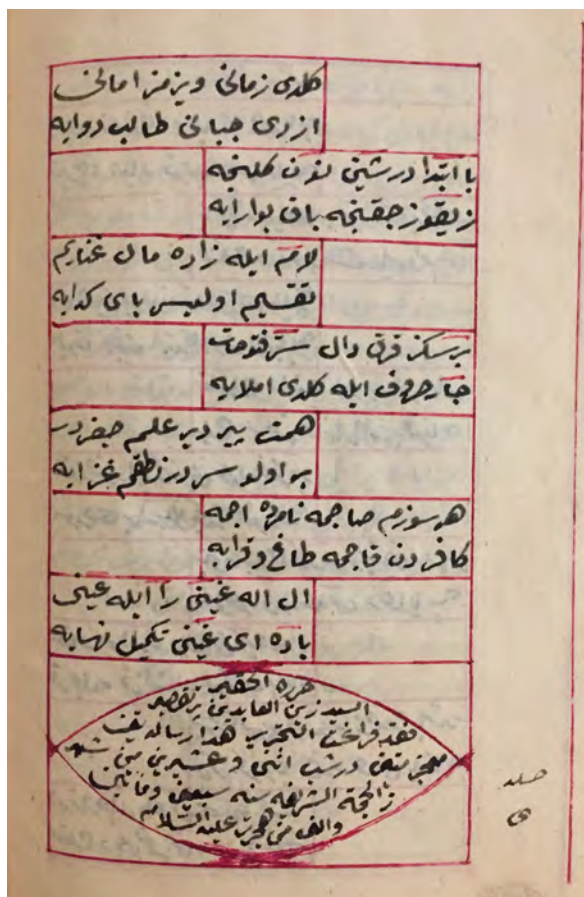 كلدى زمانى ويرمز امانى
ازدى جبانى طالب دوايه
با ابتدا در شينى نون كلنجه
زيقوز جقنجه باق بوارايه
لامم ايله زاره مال غنايم
تقسيم اولميسر باى كدايه
برسكز فرق دال ستر فتوحات
جار حروف ايله كلدى املايه
همت پير دير علمم جفر در
بو اولو سر در نطقم غزايه
هر سوزم صاجمه نامرده اجمه
كافردن قاجمه طاغ وقرايه
ال اله غينى را ايله عينى
ياره اى غينى تكميل نهايه
حرره الحقير
السيد زين العابدين
فقد فراغت التحرير هذا رساله
در شب اثنى وعشرين من شهر
ذا الحجة الشريفه سنه سبعين ومأتين
والف من هجرت عليه السلام